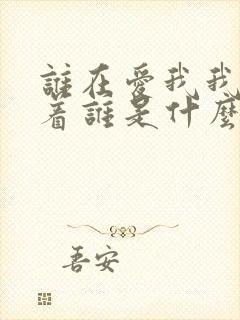 誰在愛我我
着誰是什麼
吾安